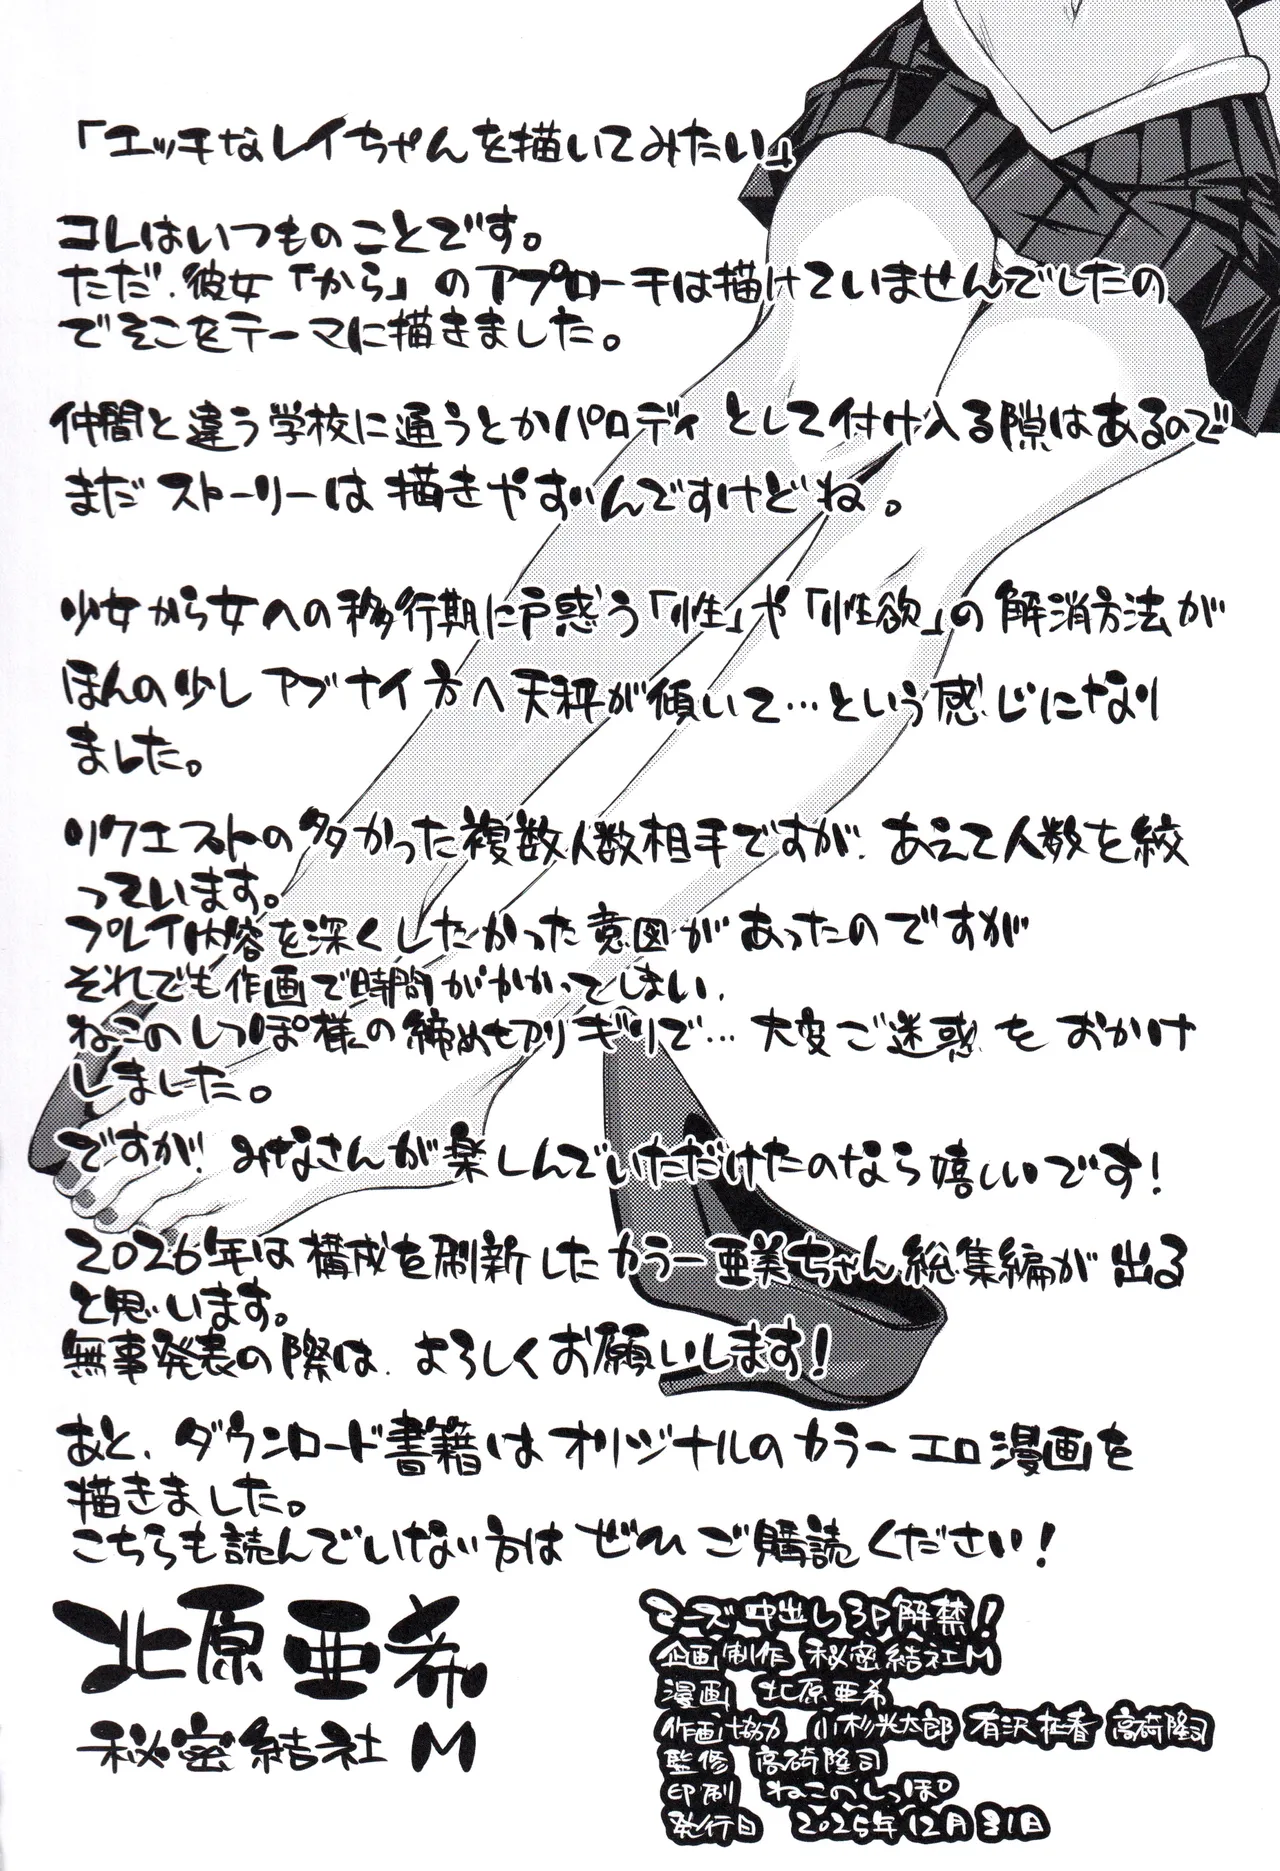 「エッチなレイちゃんを描いてみたい」
コレはいつものことです。
ただ、彼女「から」のアプローチは描けていませんでしたの
でそこをテーマに描きました。
仲間と違う学校に通うとかパロディとして付け入る隙はあるので
まだストーリーは描きやすいんですけどね。
少女から女への移行期に戸惑う「性」や「性欲」の解消方法が
ほんの少しアブナイ方へ天秤が傾いて…という感じになり
ました。
リクエストの多かった複数人数相手ですが、あえて人数を絞
っています。
プレイ内容を深くしたかった意図があったのですが
それでも作画で時間がかかってしまい、
ねこのしっぽ様の締め切りギリで…大変ご迷惑をおかけ
しました。
ですが、みなさんが楽しんでいただけたのなら嬉しいです!
2026年は構成を刷新したカラー亜美ちゃん総集編が出る
と思います。
無事発表の際は、よろしくお願いします!
あと、ダウンロード書籍はオリジナルのカラーエロ漫画を
描きました。
こちらも読んでいない方はぜひご購読ください!
北原亜希
秘密結社M
マーズ中出し3P解禁!!
企画制作 秘密結社M
漫画 北原亜希
作画協力 小杉光太郎 有沢桂春 高碕隆司
監修 高碕隆司
印刷 ねこのしっぽ
発行日 2025年12月31日